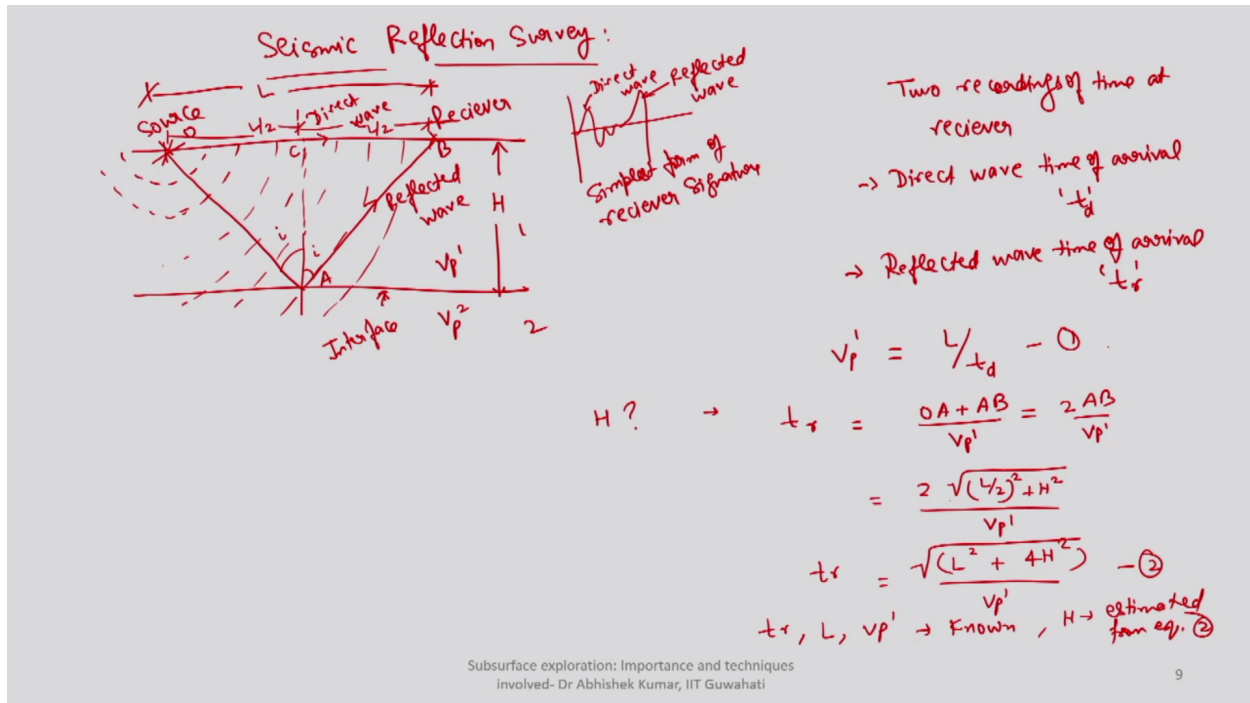 Seismic Reflection Survey:
L
Source
O
L/2
Direct
wave
L/2
Reciever
C
B
Reflected
wave
H
1
i
i
A
Vp1
Interface
Vp2
2
Direct
wave
Reflected
wave
Simplest form of
reciever Signature
Two recordings of time at
reciever
-> Direct wave time of arrival
'td'
-> Reflected wave time of arrival
'tr'
Vp1 = L/td - ①
H? → tr = (OA + AB)/Vp1 = 2 AB/Vp1
= 2 √((L/2)² + H²)/Vp1
tr = √(L² + 4H²)/Vp1 - ②
tr, L, Vp1 → Known, H → estimated
from eq. ②
Subsurface exploration: Importance and techniques
involved- Dr Abhishek Kumar, IIT Guwahati
9